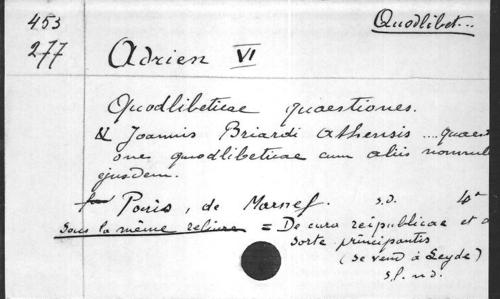 453 Quodlibet..
277 Adrien VI
Quodlibeticae quaestiones.
& Joannis Briardi Athensis .... quaest
ones quodlibeticae cum aliis nonnul
ejusdem.
Paris, de Marnef. s.d. 4°
Sous la meme reliure = De cura reipublicae et
sorte principantis
(se vend à Leyde)
s.l. n d.